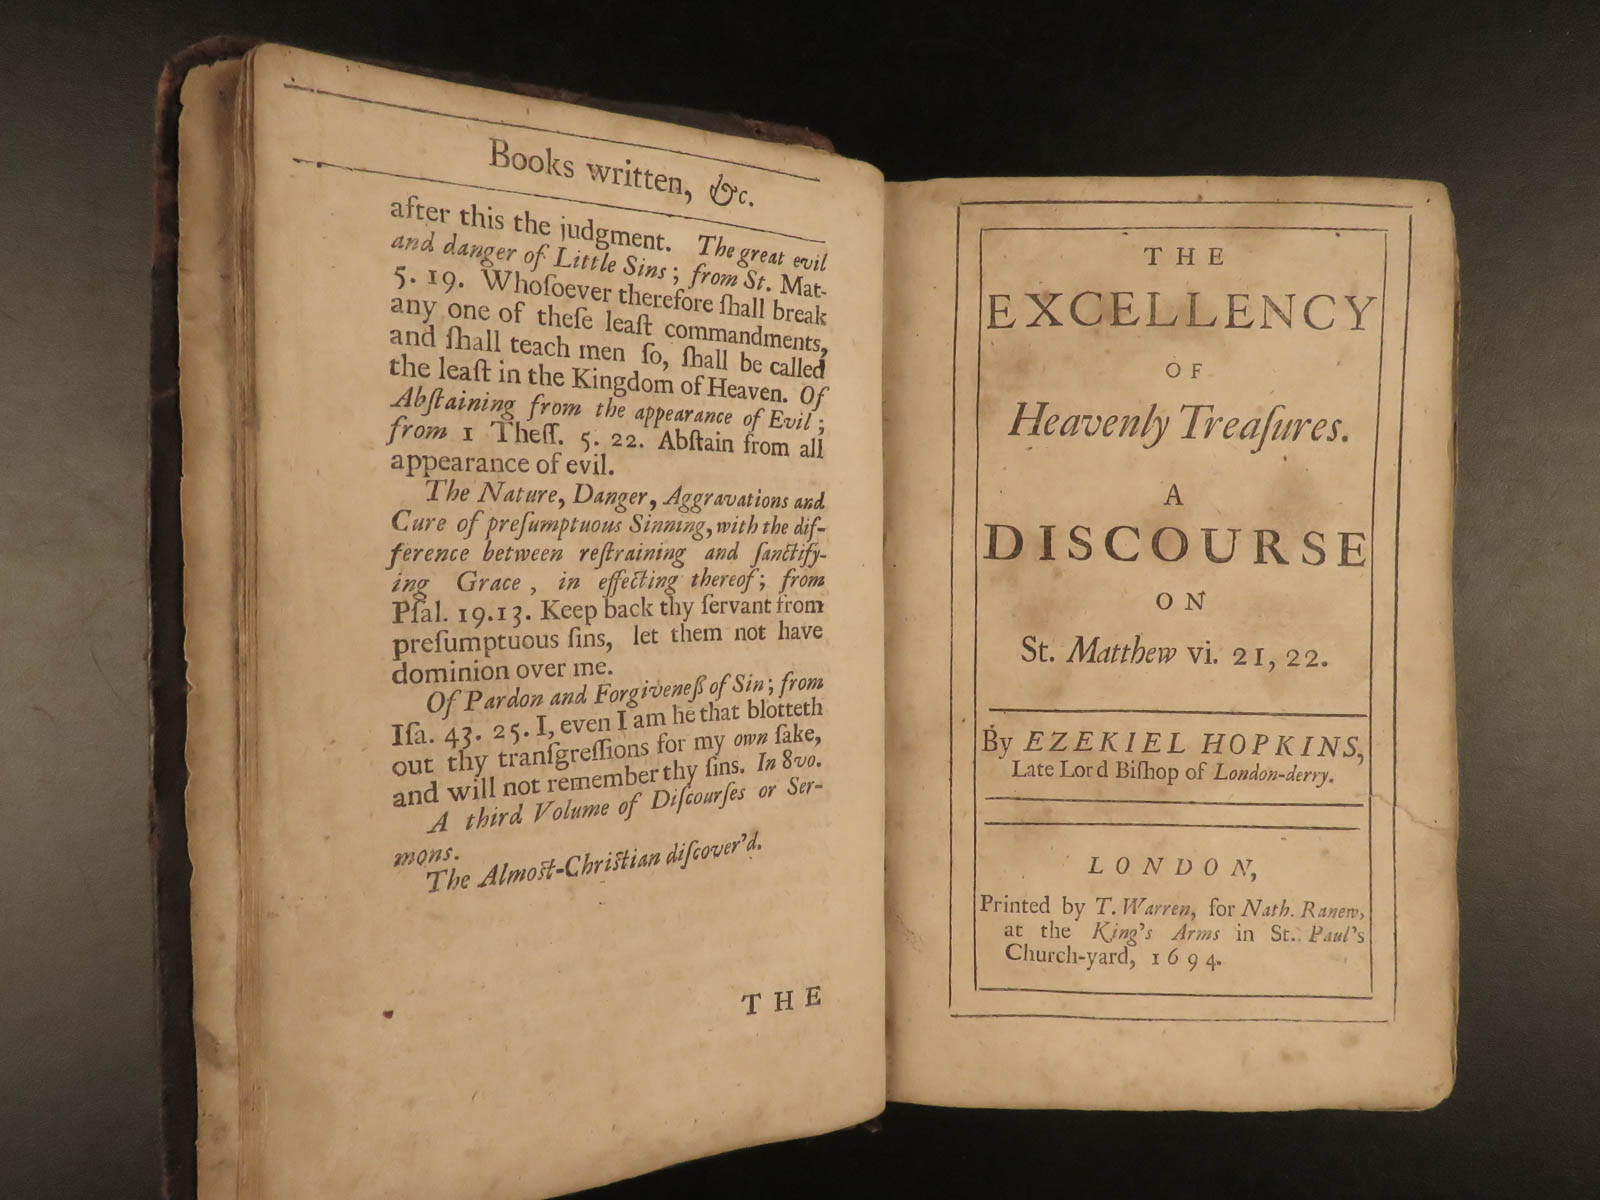 Books written, &c.
after this the judgment. The great evil
and danger of Little Sins; from St. Mat-
5. 19. Whoſoever therefore ſhall break
any one of theſe leaſt commandments,
and ſhall teach men ſo, ſhall be called
the leaſt in the Kingdom of Heaven. Of
Abſtaining from the appearance of Evil;
from 1 Theſſ. 5. 22. Abſtain from all
appearance of evil.
The Nature, Danger, Aggravations and
Cure of preſumptuous Sinning, with the dif-
ference between reſtraining and ſanctify-
ing Grace, in effecting thereof; from
Pſal. 19.13. Keep back thy ſervant from
preſumptuous ſins, let them not have
dominion over me.
Of Pardon and Forgiveneß of Sin; from
Iſa. 43. 25. I, even I am he that blotteth
out thy tranſgreſſions for my own ſake,
and will not remember thy ſins. In 8vo.
A third Volume of Diſcourſes or Ser-
mons.
The Almost-Christian diſcover'd.
THE
THE
EXCELLENCY
OF
Heavenly Treaſures.
A
DISCOURSE
ON
St. Matthew vi. 21, 22.
By EZEKIEL HOPKINS,
Late Lord Biſhop of London-derry.
LONDON,
Printed by T. Warren, for Nath. Ranew,
at the King's Arms in St. Paul's
Church-yard, 1694.